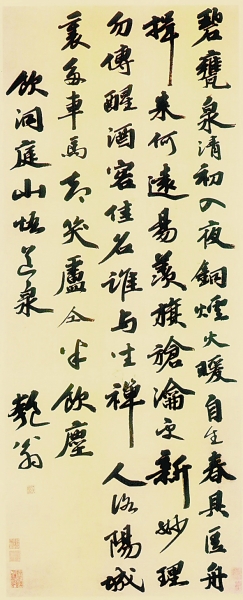 碧甕泉清初入夜銅爐火暖自生春具區舟
楫來何遠陽羨旗槍瀹更新妙理
勿傳醒酒客佳名誰與坐禪人洛陽城
裏多車馬却笑盧仝半飲塵
飲洞庭山悟道泉 匏翁